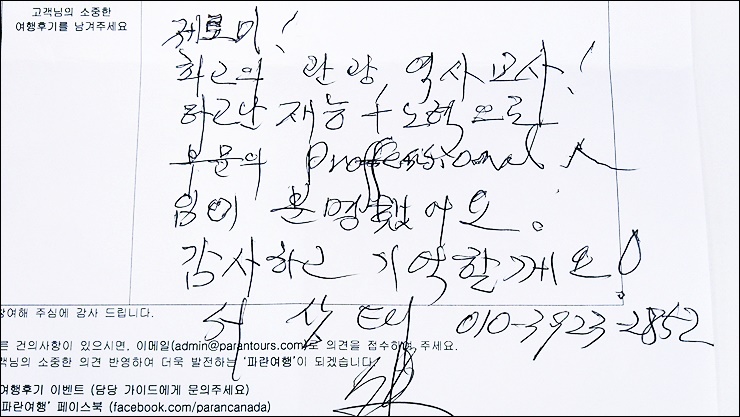 고객님의 소중한
여행후기를 남겨주세요
제로미!
최고의 관광 역사교사!
타고난 재능 + 노력으로
부문의 Professional 人
임이 분명했어요.
감사하고 기억할게요!
서상태 010-3923-2852
참여해 주심에 감사 드립니다.
른 건의사항이 있으시면, 이메일(admin@parantours.com)로 의견을 접수하여 주세요.
고객님의 소중한 의견 반영하여 더욱 발전하는 '파란여행'이 되겠습니다.
여행후기 이벤트 (담당 가이드에게 문의주세요)
파란여행' 페이스북 (facebook.com/parancanada)